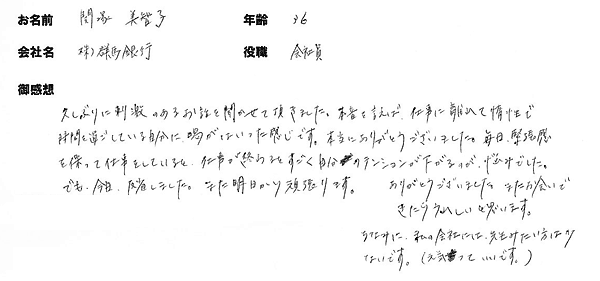 お名前 間塚 美智子 年齢 36
会社名 (株)群馬銀行 役職 会社員
御感想
久しぶりに刺激のあるお話を聞かせて頂きました。本音を言えば、仕事に離れて惰性で
時間を過ごしている自分に、喝がはいった感じです。本当にありがとうございました。毎日、緊張感
を保って仕事をしていると、仕事が終わるとすごく自分のテンションが下がるのが、悩みでした。
でも、今日、反省しました。また明日から頑張ります。 ありがとうございました。またお会いで
きたらうれしいと思います。
ちなみに、私の会社には、先生みたい方はか
ないです。(元気っていいです。)